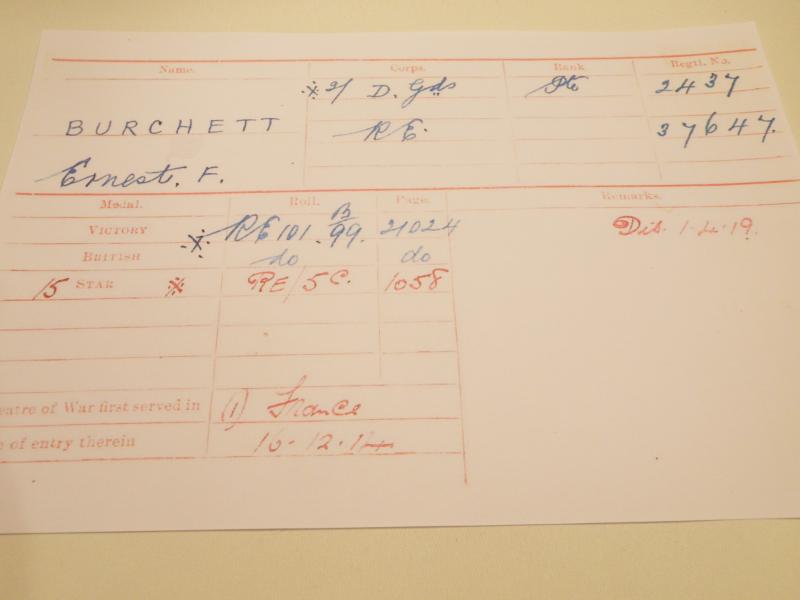 Name. Corps. Rank. Regtl. No.
※ 2/ D. Gds Pte 2437
BURCHETT RE. 37647.
Ernest. F.
Medal. Roll. Page. Remarks.
VICTORY ※ RE 101. B/99. 21024 Dis. 1.4.19.
BRITISH do do
15 STAR ※ RE/5C. 1058
eatre of War first served in (1) France
e of entry therein 16.12.14